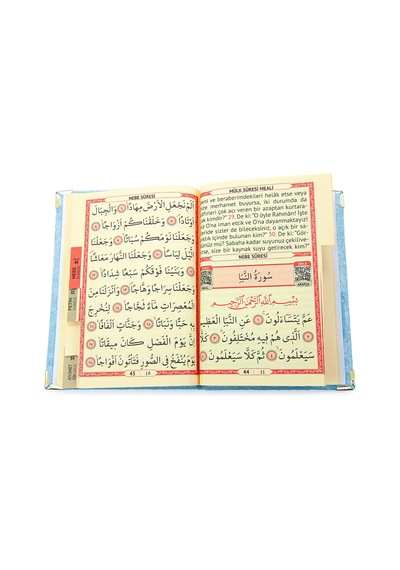 MÜLK SÛRESİ MEALİ
eni ve beraberimdekileri helâk etse veya
ize merhamet buyursa, iki durumda da
âfirleri çok acı veren bir azaptan kurtara-
ak kimdir?" 29. De ki: "O öyle Rahmân! İşte
O'na iman ettik ve O'na dayanmaktayız!
sizde sizler de bileceksiniz, o açık bir sa-
klık içinde bulunan kim?" 30. De ki: "Gör-
ünüz mü? Sabaha kadar suyunuz çekilive-
rse, size bir kaynak suyu getirecek kim?
NEBE SÛRESİ
سُورَةُ النَّبَأِ
بِسْمِ اللّٰهِ الرَّحْمٰنِ الرَّحِيمِ
عَمَّ يَتَسَاءَلُونَ ١ عَنِ النَّبَإِ الْعَظِيمِ
الَّذِي هُمْ فِيهِ مُخْتَلِفُونَ ٣ كَلَّا
سَيَعْلَمُونَ ٤ ثُمَّ كَلَّا سَيَعْلَمُونَ ٥
44 11
NEBE SÛRESİ
اَلَمْ نَجْعَلِ الْاَرْضَ مِهَادًا ٦ وَالْجِبَالَ
اَوْتَادًا ٧ وَخَلَقْنَاكُمْ اَزْوَاجًا ٨
وَجَعَلْنَا نَوْمَكُمْ سُبَاتًا ٩ وَجَعَلْنَا
الَّيْلَ لِبَاسًا ١٠ وَجَعَلْنَا النَّهَارَ مَعَاشًا
وَبَنَيْنَا فَوْقَكُمْ سَبْعًا شِدَادًا ١٢
وَجَعَلْنَا سِرَاجًا وَهَّاجًا ١٣ وَاَنْزَلْنَا مِنَ
الْمُعْصِرَاتِ مَاءً ثَجَّاجًا ١٤ لِنُخْرِجَ
بِهِ حَبًّا وَنَبَاتًا ١٥ وَجَنَّاتٍ اَلْفَافًا ١٦
اِنَّ يَوْمَ الْفَصْلِ كَانَ مِيقَاتًا ١٧
يَوْمَ يُنْفَخُ فِي الصُّورِ فَتَأْتُونَ اَفْوَاجًا ١٨
45 10
NEBE
FETİH